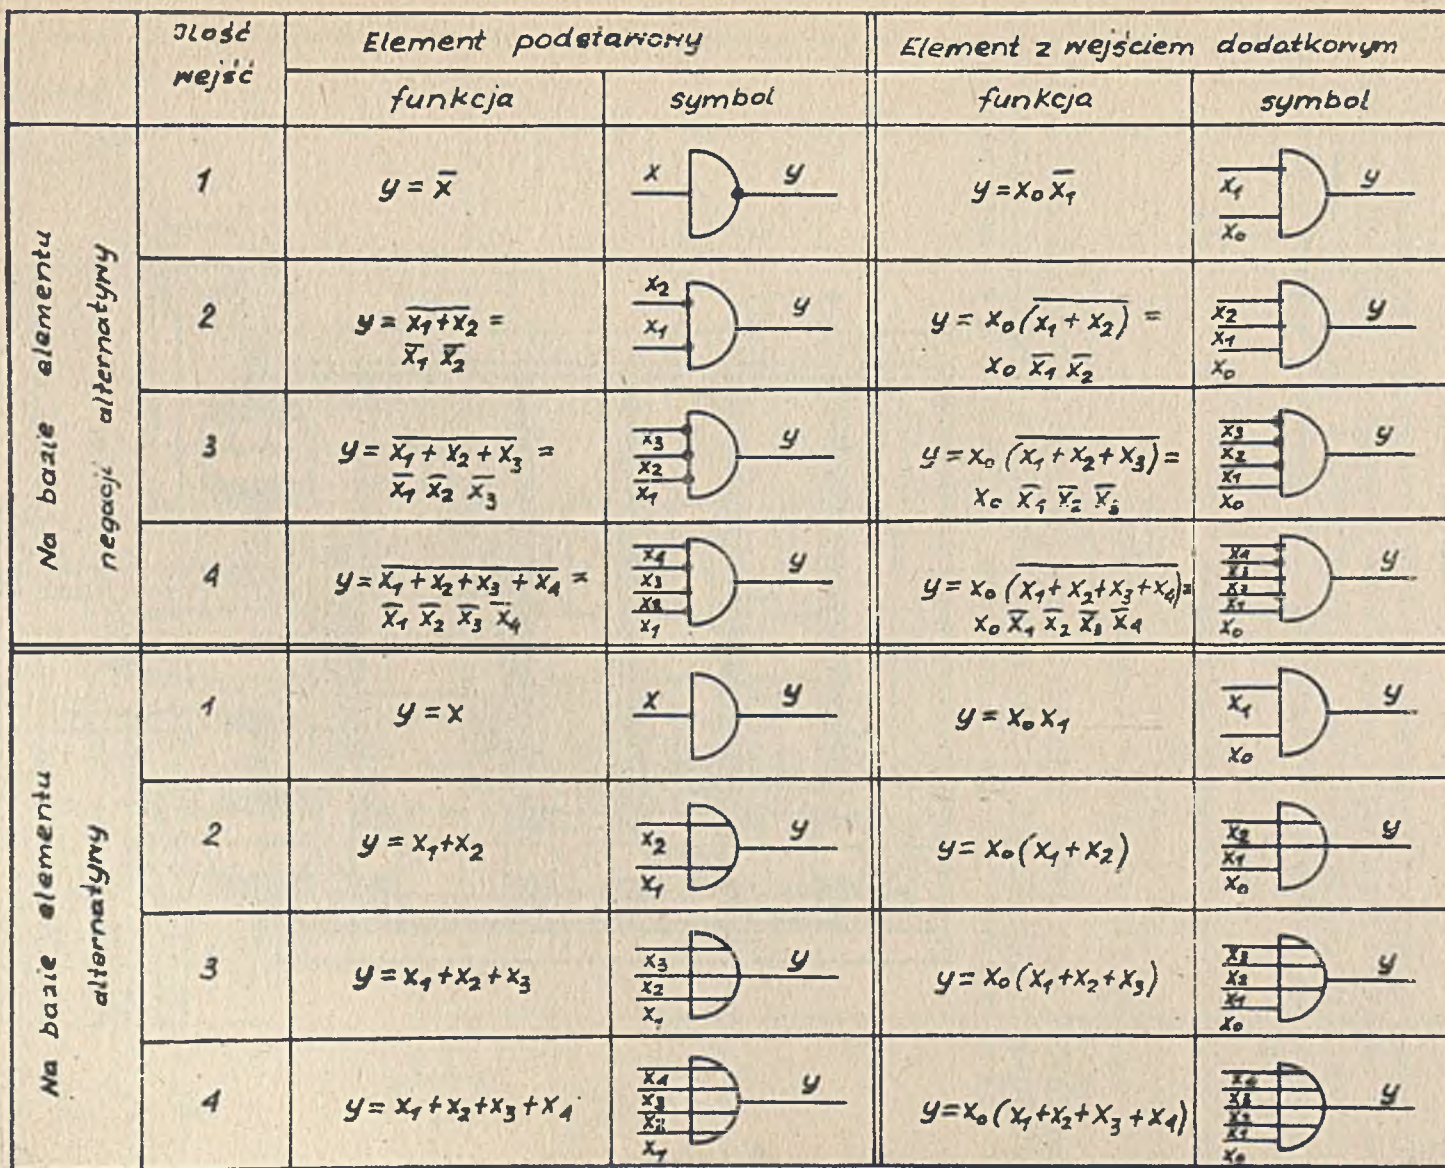 Ilość wejść
Element podstawowy
Element z wejściem dodatkowym
funkcja
symbol
funkcja
symbol
Na bazie elementu negacji alternatywy
1
y = x̅
x y
y = x₀ x̅₁
x₁ y
x₀
2
y = \overline{x₁ + x₂} =
x̅₁ x̅₂
x₂
x₁ y
y = x₀ (\overline{x₁ + x₂}) =
x₀ x̅₁ x̅₂
x₂ y
x₁
x₀
3
y = \overline{x₁ + x₂ + x₃} =
x̅₁ x̅₂ x̅₃
x₃ y
x₂
x₁
y = x₀ (\overline{x₁ + x₂ + x₃}) =
x₀ x̅₁ x̅₂ x̅₃
x₃ y
x₂
x₁
x₀
4
y = \overline{x₁ + x₂ + x₃ + x₄} =
x̅₁ x̅₂ x̅₃ x̅₄
x₄ y
x₃
x₂
x₁
y = x₀ (\overline{x₁ + x₂ + x₃ + x₄}) =
x₀ x̅₁ x̅₂ x̅₃ x̅₄
x₄ y
x₃
x₂
x₁
x₀
Na bazie elementu alternatywy
1
y = x
x y
y = x₀ x₁
x₁ y
x₀
2
y = x₁ + x₂
x₂ y
x₁
y = x₀ (x₁ + x₂)
x₂ y
x₁
x₀
3
y = x₁ + x₂ + x₃
x₃ y
x₂
x₁
y = x₀ (x₁ + x₂ + x₃)
x₃ y
x₂
x₁
x₀
4
y = x₁ + x₂ + x₃ + x₄
x₄ y
x₃
x₂
x₁
y = x₀ (x₁ + x₂ + x₃ + x₄)
x₄ y
x₃
x₂
x₁
x₀